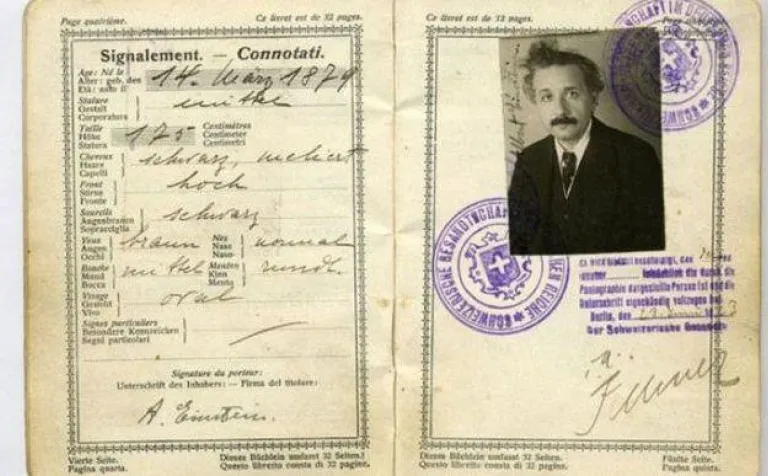 Page quatrième.
Ce livret est de 32 pages.
Signalement. — Connotati.
Age: Né le
Alter: geb. den
Età: nato il
14. März 1879
Stature
Gestalt
Corporatura
mittel
Taille
Höhe
Statura
175
Centimètres
Centimeter
Centimetri
Cheveux
Haare
Capelli
schwarz, meliert
Front
Stirne
Fronte
hoch
Sourcils
Augenbrauen
Sopracciglia
schwarz
Yeux
Augen
Occhi
braun
Nez
Nase
Naso
normal
Bouche
Mund
Bocca
mittel
Menton
Kinn
Mento
rund.
Visage
Gesicht
Viso
oval
Signes particuliers
Besondere Kennzeichen
Segni particolari
Signature du porteur:
Unterschrift des Inhabers: — Firma del titolare:
A. Einstein.
Vierte Seite.
Pagina quarta.
Dieses Büchlein umfasst 32 Seiten.
Questo libretto consta di 32 pagine.
Ce livret est de 32 pages.
Page cinquième.
SCHWEIZERISCHE GESANDTSCHAFT IM DEUTSCHEN REICHE
SCHWEIZERISCHE GESANDTSCHAFT IM DEUTSCHEN REICHE
Es wird hiermit bescheinigt, dass
die durch die
Photographie dargestellte Person ist und die
Unterschrift eigenhändig vollzogen hat.
Berlin, den
Der Schweizerische Gesandte
i. A.
Dieses Büchlein umfasst 32 Seiten.
Questo libretto consta di 32 pagine.
Fünfte Seite.
Pagina quinta.